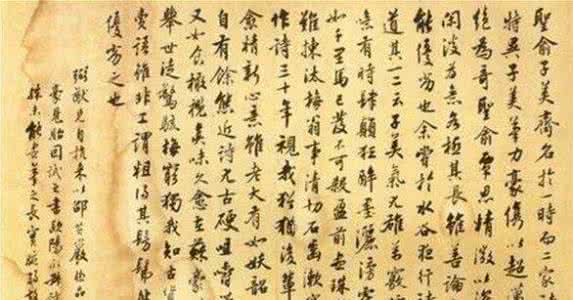 聖俞子美齋名於一時而二家詩
特異子美筆力豪儁以超邁
絕為奇聖俞覃思精微以深
閑淡為意各極其長雖善論
能優劣也余嘗於水谷夜行詩
道其一二云子美氣尤雄萬竅
噫有時肆顛狂醉墨灑滂霈
如千里馬已發不可殺盈前盡珠
難揀汰梅翁事清切石齒漱寒
作詩三十年視我猶後輩
愈精新心意雖老大有如妖韶
自有餘態近詩尤古硬咀嚼
又如食橄欖真味久愈在蘇豪
舉世徒驚駭梅窮獨我知古貨
賣語雖非工謂粗得其髣髴
優劣之也
兄自 來以
見貽因試之書歐陽
能盡筆之長